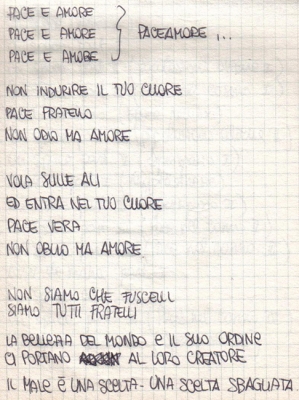 PACE E AMORE
PACE E AMORE } PACEAMORE ...
PACE E AMORE
NON INDURIRE IL TUO CUORE
PACE FRATELLO
NON ODIO MA AMORE
VOLA SULLE ALI
ED ENTRA NEL TUO CUORE
PACE VERA
NON OBLIO MA AMORE
NON SIAMO CHE FUSCELLI
SIAMO TUTTI FRATELLI
LA BELLEZZA DEL MONDO E IL SUO ORDINE
CI PORTANO AL LORO CREATORE
IL MALE È UNA SCELTA - UNA SCELTA SBAGLIATA